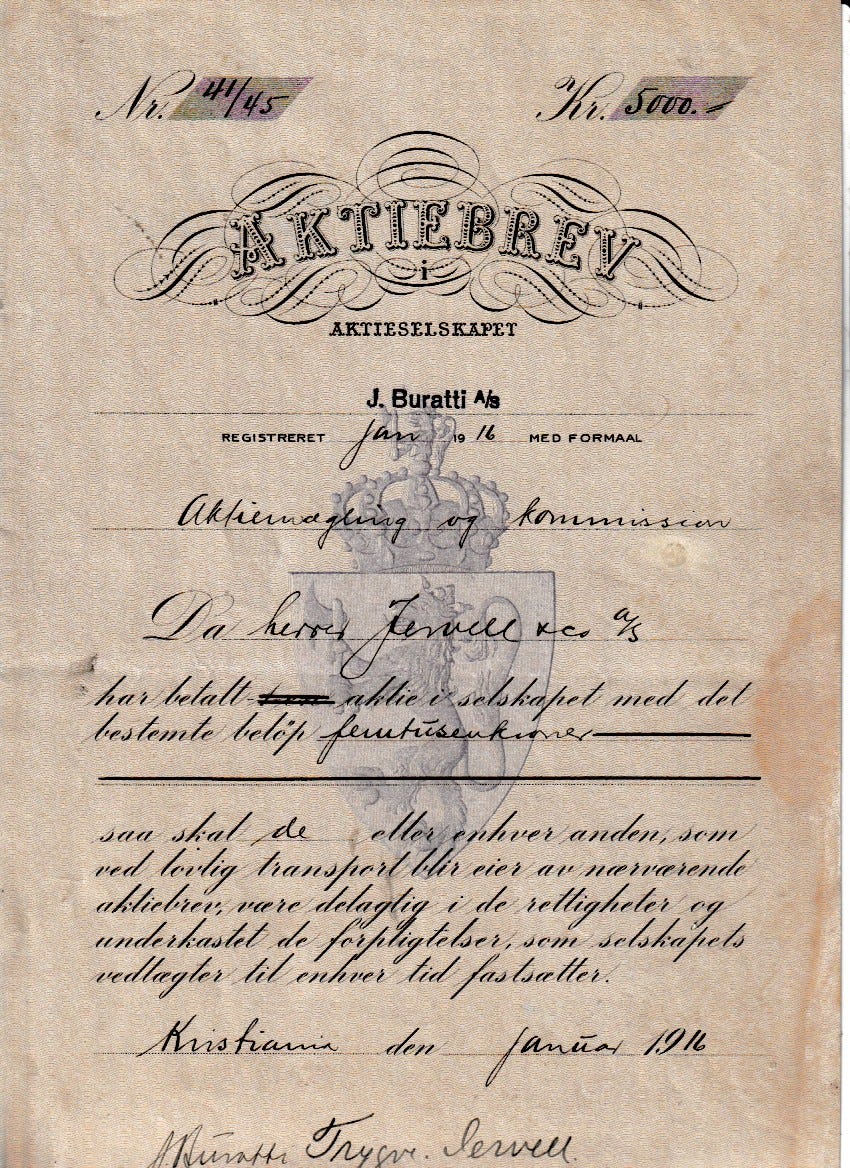 Nr. 41/45 Kr. 5000.-
AKTIEBREV
i
AKTIESELSKAPET
J. Buratti A/s
REGISTRERET jan 19 16 MED FORMAAL
Aktiemægling og kommission
Da herrer Jervell & co a/s
har betalt aktie i selskapet med det
bestemte beløp femtusenkroner
saa skal de eller enhver anden, som
ved lovlig transport blir eier av nærværende
aktiebrev, være delagtig i de rettigheter og
underkastet de forpligtelser, som selskapets
vedtægter til enhver tid fastsætter.
Kristiania den januar 1916
J. Buratti Trygve. Jervell.